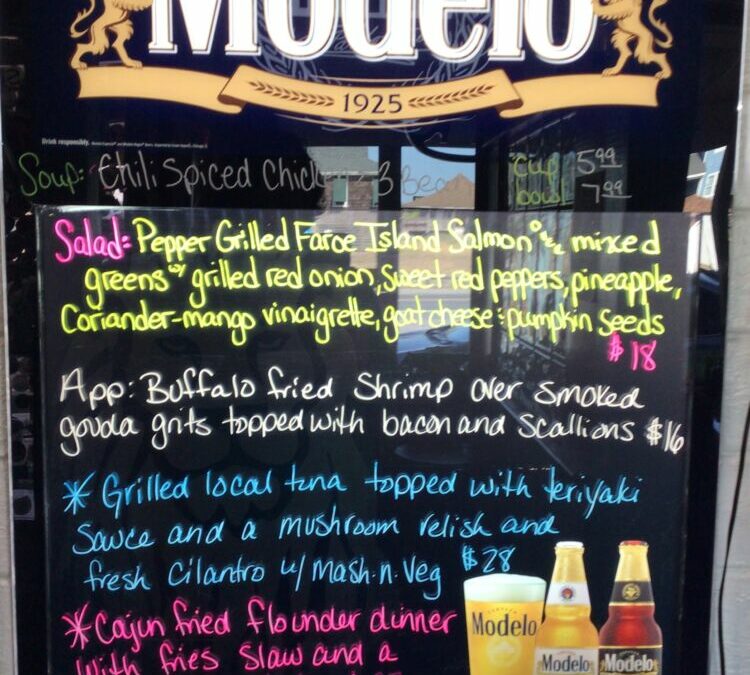 Modelo
1925
Drink responsibly.
Soup: Chili Spiced Chicken 3 Bean
cup 5.99
bowl 7.99
Salad: Pepper Grilled Faroe Island Salmon mixed
greens w/ grilled red onion, Sweet red peppers, pineapple,
Coriander-mango vinaigrette, goat cheese & pumpkin Seeds
$18
App: Buffalo fried Shrimp over smoked
gouda grits topped with bacon and scallions $16
* Grilled local tuna topped with teriyaki
Sauce and a mushroom relish and
fresh Cilantro w/ Mash-n-Veg $28
* Cajun fried flounder dinner
with fries slaw and a
Modelo
Modelo
Modelo